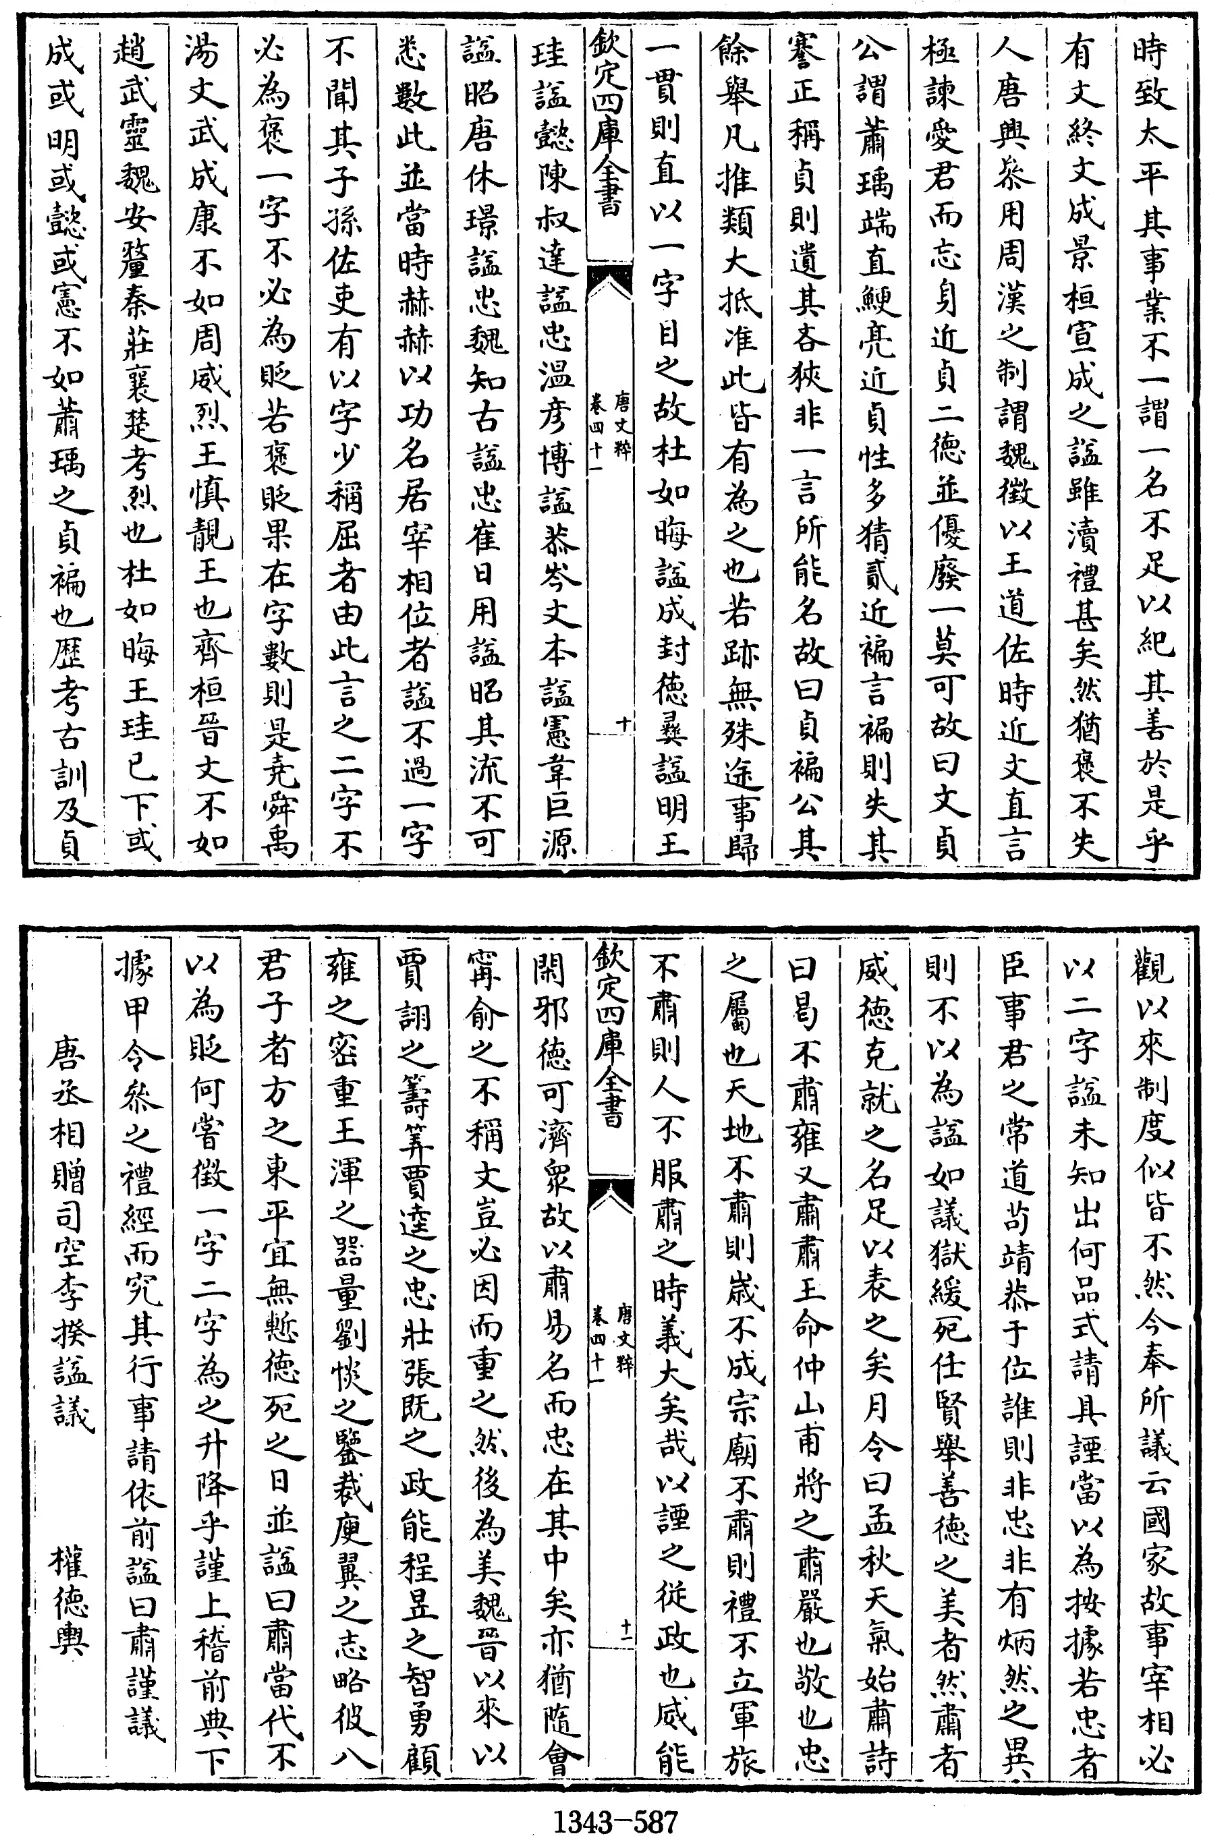 時致太平其事業不一謂一名不足以紀其善於是乎
有文終文成景桓宣成之諡雖瀆禮甚矣然猶褒不失
人唐興叅用周漢之制謂魏徵以王道佐時近文直言
極諫愛君而忘身近貞二德並優廢一莫可故曰文貞
公謂蕭瑀端直鯁亮近貞性多猜貳近褊言褊則失其
謇正稱貞則遺其吝狹非一言所能名故曰貞褊公其
餘舉凡推類大抵准此皆有為之也若跡無殊途事歸
一貫則直以一字目之故杜如晦諡成封德彞諡明王
欽定四庫全書
唐文粹
卷四十一
十
珪諡懿陳叔達諡忠温彦博諡恭岑文本諡憲韋巨源
諡昭唐休璟諡忠魏知古諡忠崔日用諡昭其流不可
悉數此並當時赫赫以功名居宰相位者諡不過一字
不聞其子孫佐吏有以字少稱屈者由此言之二字不
必為褒一字不必為貶若褒貶果在字數則是堯舜禹
湯文武成康不如周威烈王慎靚王也齊桓晉文不如
趙武靈魏安釐秦莊襄楚考烈也杜如晦王珪已下或
成或明或懿或憲不如蕭瑀之貞褊也歴考古訓及貞
觀以來制度似皆不然今奉所議云國家故事宰相必
以二字諡未知出何品式請具諲當以為按據若忠者
臣事君之常道苟靖恭于位誰則非忠非有炳然之異
則不以為諡如議獄緩死任賢舉善德之美者然肅者
威德克就之名足以表之矣月令曰孟秋天氣始肅詩
曰曷不肅雍又肅肅王命仲山甫將之肅嚴也敬也忠
之屬也天地不肅則歲不成宗廟不肅則禮不立軍旅
不肅則人不服肅之時義大矣哉以諲之從政也威能
欽定四庫全書
唐文粹
卷四十一
十一
閑邪德可濟衆故以肅易名而忠在其中矣亦猶隨會
甯俞之不稱文豈必因而重之然後為美魏晉以來以
賈詡之籌筭賈逵之忠壯張既之政能程昱之智勇顧
雍之密重王渾之器量劉惔之鑒裁庾翼之志略彼八
君子者方之東平宜無慙德死之日並諡曰肅當代不
以為貶何嘗徵一字二字為之升降乎謹上稽前典下
據甲令叅之禮經而究其行事請依前諡曰肅謹議
唐丞相贈司空李揆諡議　　權德輿
1343-587